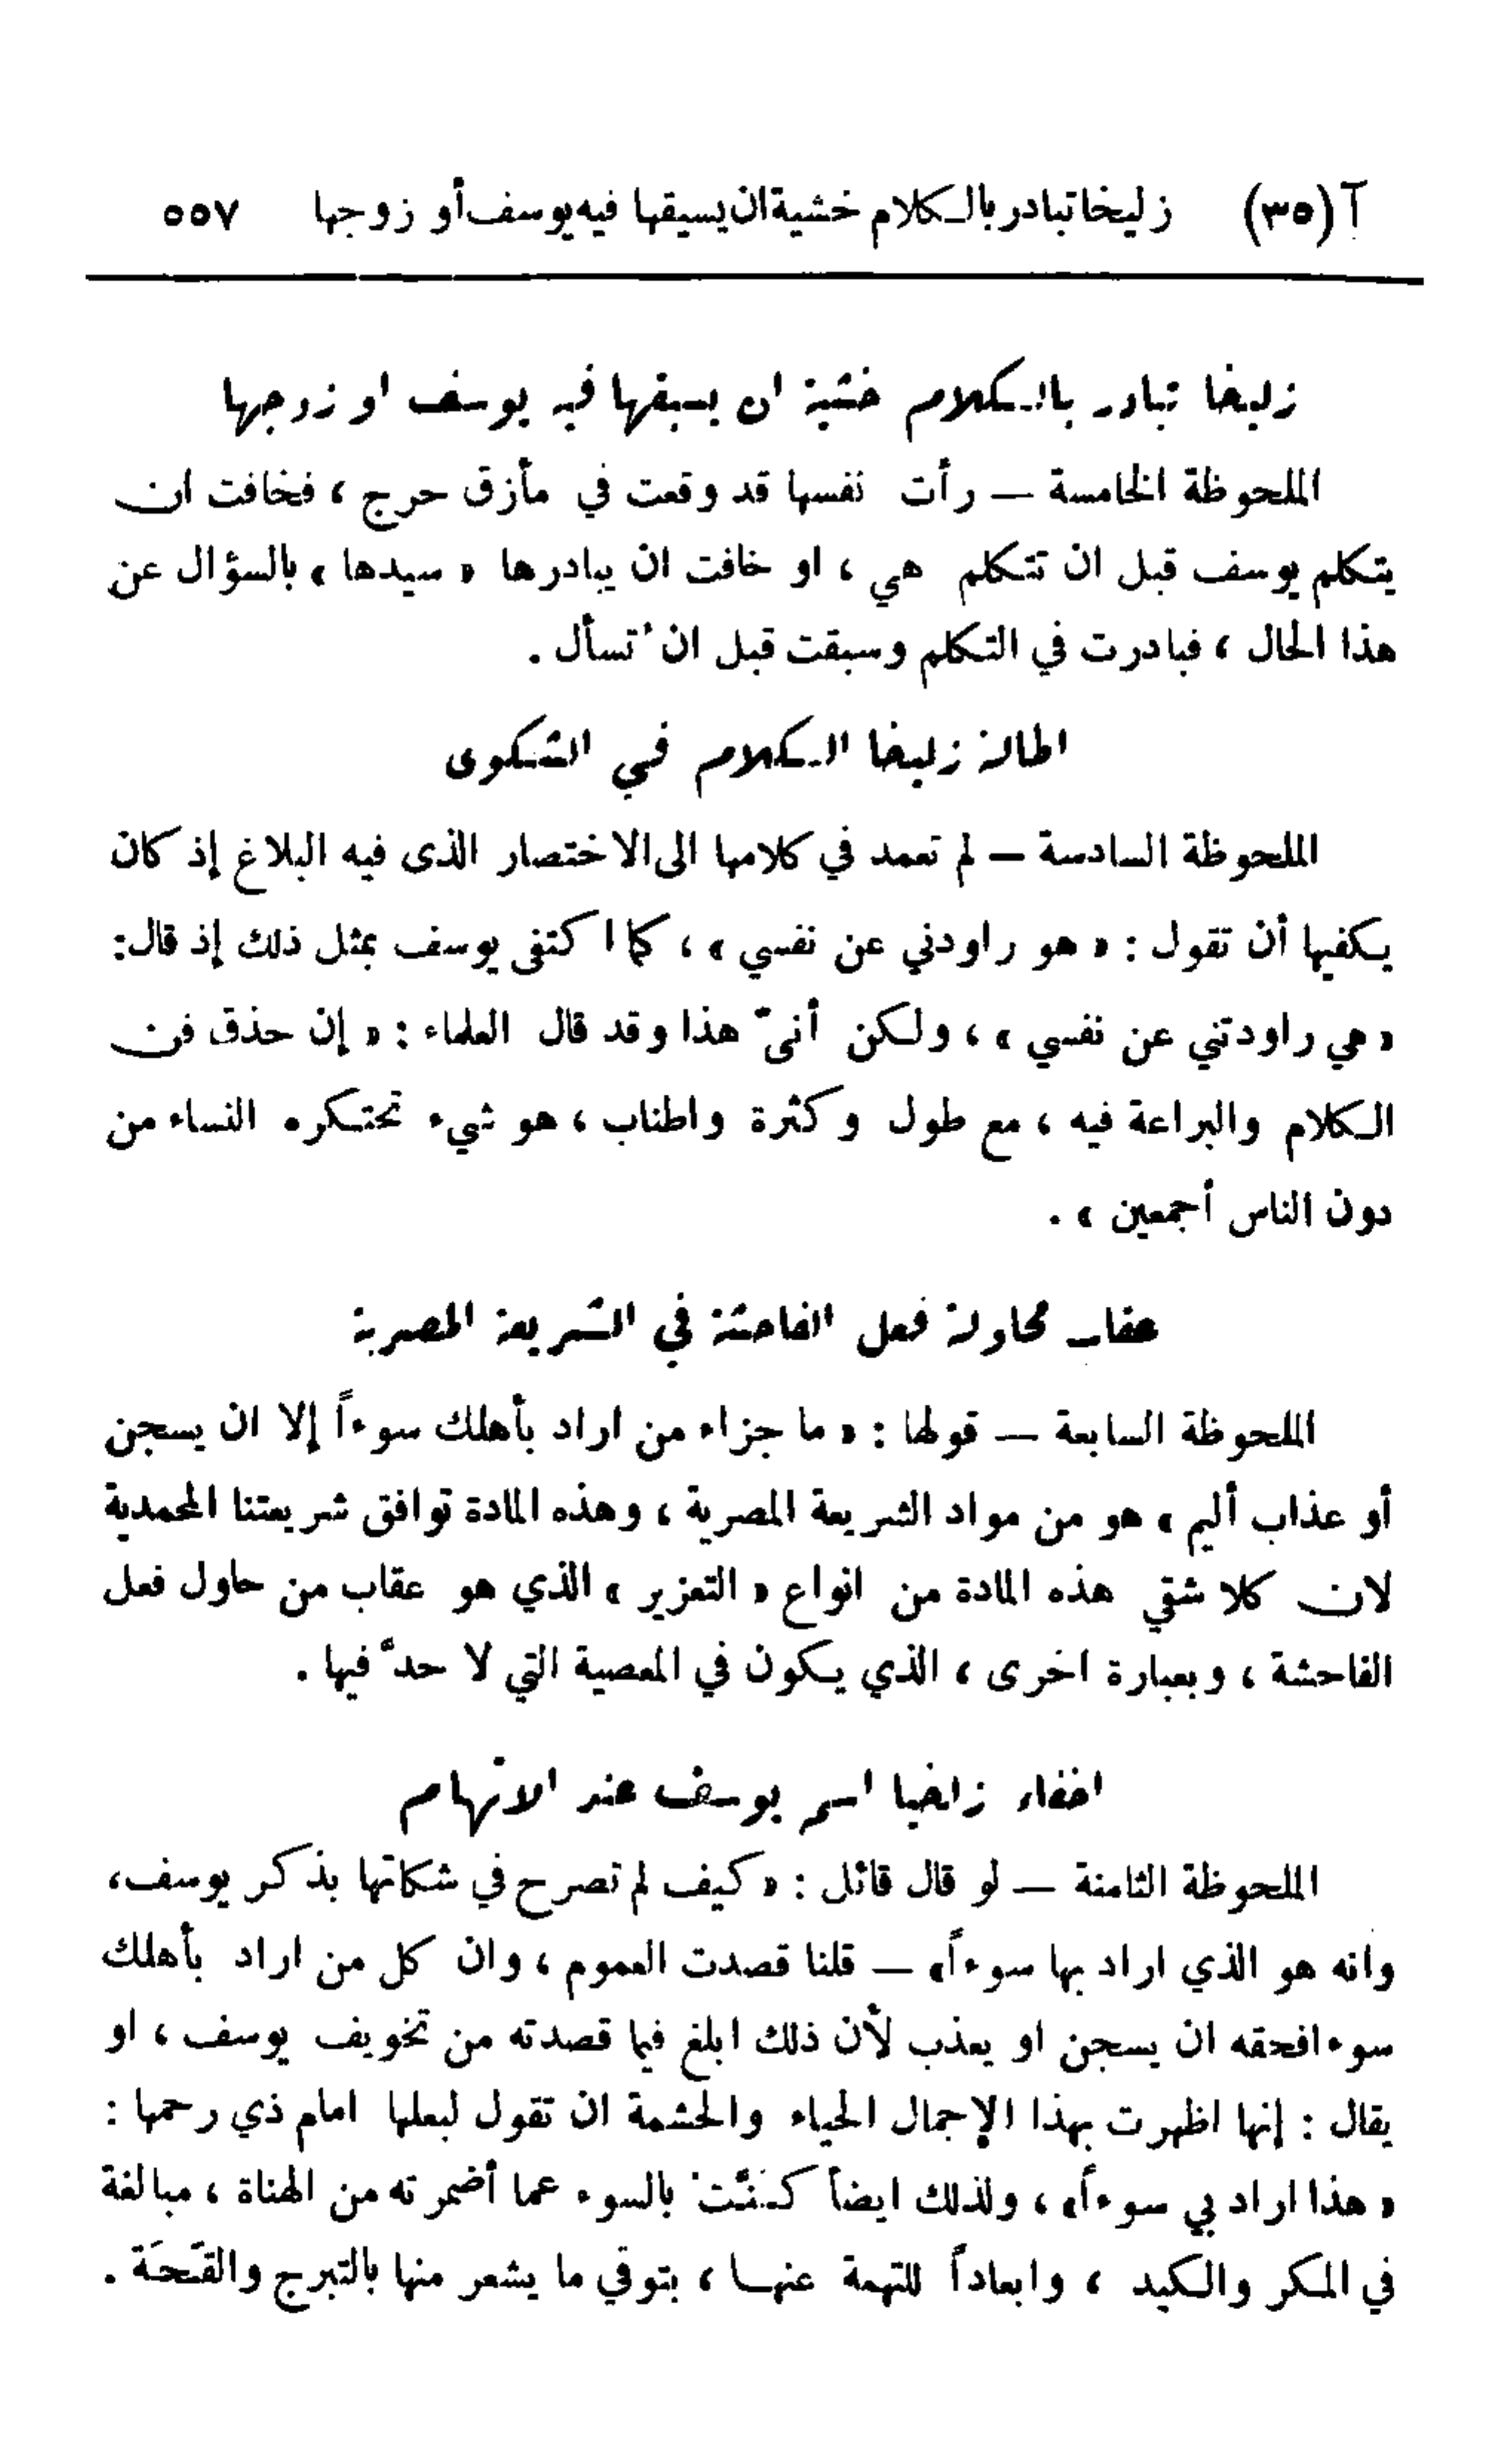 آ (٣٥) زليخا تبادر بالكلام خشية ان يسبقها فيه يوسف أو زوجها ٥٥٧
زليخا تبادر بالكلام خشية ان يسبقها فيه يوسف او زوجها
الملحوظة الخامسة — رأت نفسها قد وقعت في مأزق حرج ، فخافت ان
يتكلم يوسف قبل ان تتكلم هي ، او خافت ان يبادرها « سيدها » بالسؤال عن
هذا الحال ، فبادرت في التكلم وسبقت قبل ان تُسأل .
اطالة زليخا الكلام في الشكوى
الملحوظة السادسة — لم تعمد في كلامها الى الاختصار الذى فيه البلاغ إذ كان
يكفيها أن تقول : « هو راودني عن نفسي » ، كما اكتفى يوسف بمثل ذلك إذ قال:
« هي راودتني عن نفسي » ، ولكن أنىّ هذا وقد قال العلماء : « إن حذق فن
الكلام والبراعة فيه ، مع طول وكثرة واطناب ، هو شيء تحتكره النساء من
دون الناس أجمعين » .
عقاب محاولة فعل الفاحشة في الشريعة المصرية
الملحوظة السابعة — قولها : « ما جزاء من اراد بأهلك سوءاً إلا ان يسجن
أو عذاب أليم » هو من مواد الشريعة المصرية ، وهذه المادة توافق شريعتنا المحمدية
لان كلا شقي هذه المادة من انواع « التعزير » الذي هو عقاب من حاول فعل
الفاحشة ، وبعبارة اخرى ، الذي يكون في المعصية التي لا حدّ فيها .
اخفاء زلخيا اسم يوسف عند الاتهام
الملحوظة الثامنة — لو قال قائل : « كيف لم تصرح في شكاتها بذكر يوسف،
وانه هو الذي اراد بها سوءاً» — قلنا قصدت العموم ، وان كل من اراد بأهلك
سوءا فحقه ان يسجن او يعذب لأن ذلك ابلغ فيما قصدته من تخويف يوسف ، او
يقال : إنها اظهرت بهذا الإجمال الحياء والحشمة ان تقول لبعلها امام ذي رحمها :
« هذا اراد بي سوءاً» ، ولذلك ايضاً كَنَّتْ بالسوء عما أضمرته من الهناة ، مبالغة
في المكر والكيد ، وابعاداً للتهمة عنها ، بتوقي ما يشعر منها بالتبرج والقَحَة .